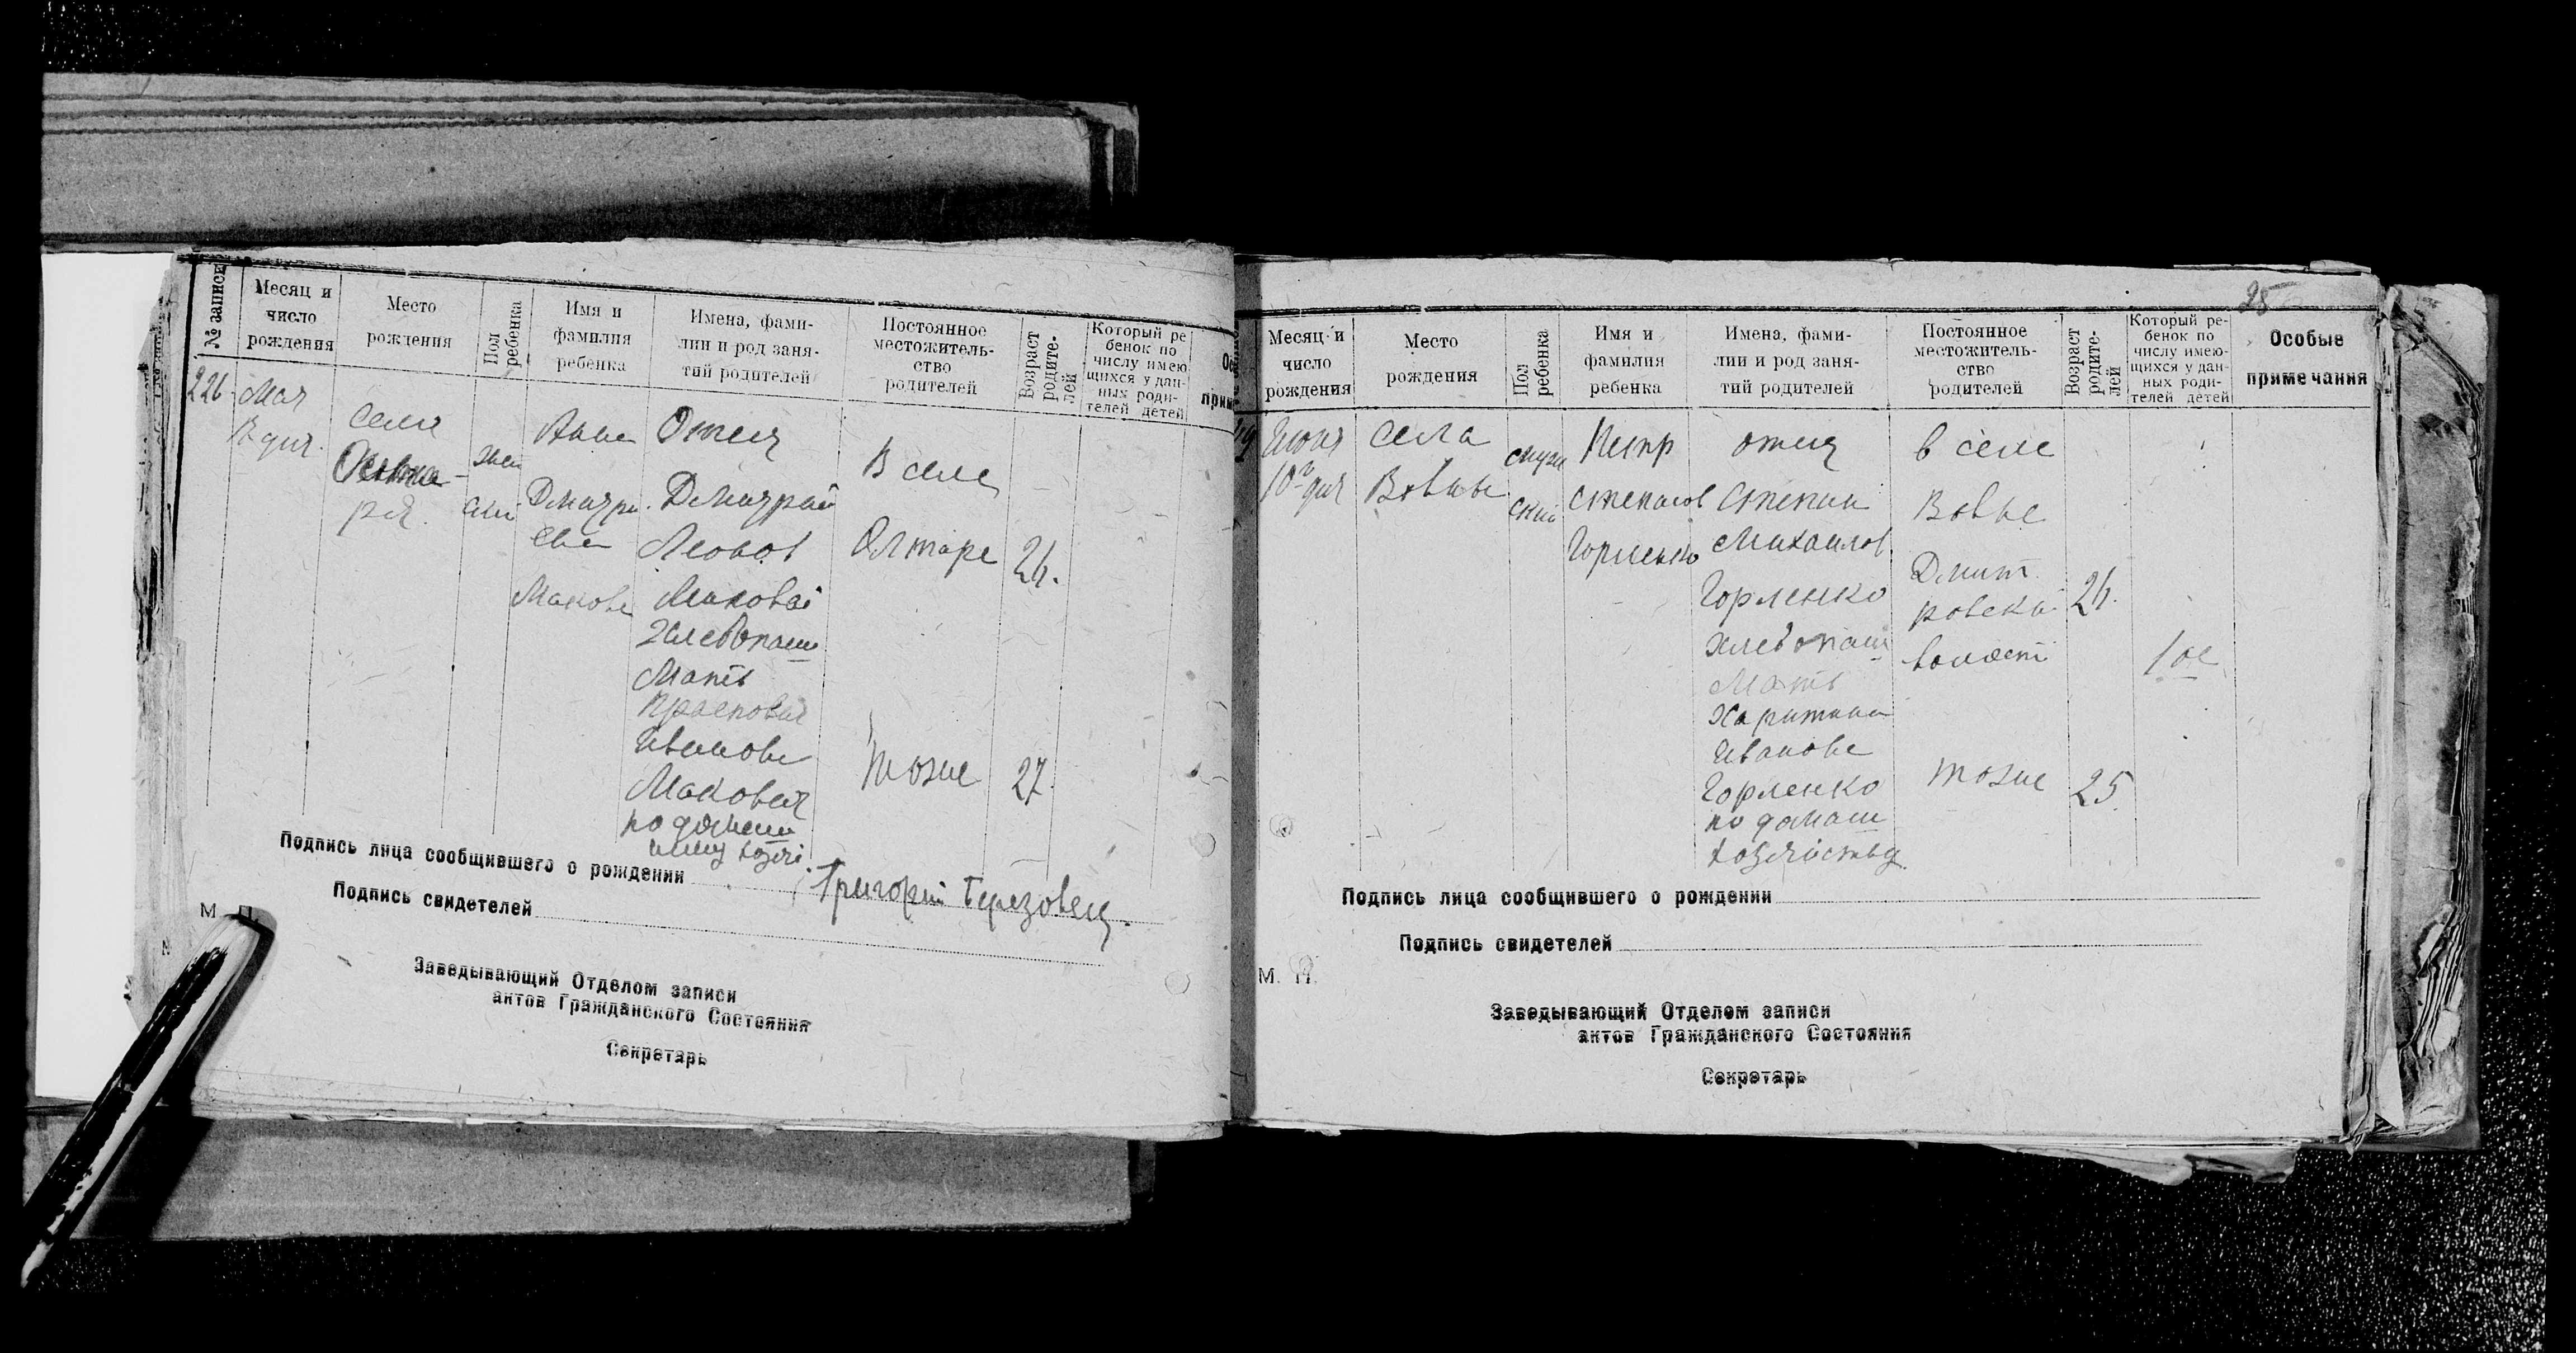 № записи
Месяц и
число
рождения
Место
рождения
Пол
ребенка
Имя и
фамилия
ребенка
Имена, фами-
лии и род заня-
тий родителей
Постоянное
местожитель-
ство
родителей
Возраст
родите-
лей
Который ре
бенок по
числу имею
щихся у дан-
ных роди-
телей детей
Ос
прим
226
Мая
села
ря.
жен
ский
Анна
Дмитри
ева
Макове
Отец
Дмитрий
Маковей
Хлебопаш
Мать
Прасковия
Иванова
Маковея
по домаш
В селе
Олтаре
тоже
24.
27
Подпись лица сообщившего о рождении
Григорий Березовец.
Подпись свидетелей
М. П.
Заведывающий Отделом записи
актов Гражданского Состояния
Секретарь
25
Месяц и
число
рождения
Место
рождения
Пол
ребенка
Имя и
фамилия
ребенка
Имена, фами-
лии и род заня-
тий родителей
Постоянное
местожитель-
ство
родителей
Возраст
родите-
лей
Который ре-
бенок по
числу имею-
щихся у дан-
ных роди-
телей детей
Особые
примечания
Июня
10го дня
села
Вовны
муж
ский
Петр
Степанов
Горленко
отец
Степан
Михайлов
Горленко
хлебопаш
Мать
Харитина
Иванова
Горленко
по домаш
хозяйству
в селе
Вовне
Дмит
ровской
волости
тоже
24.
25.
1ое
Подпись лица сообщившего о рождении
Подпись свидетелей
М. П.
Заведывающий Отделом записи
актов Гражданского Состояния
Секретарь